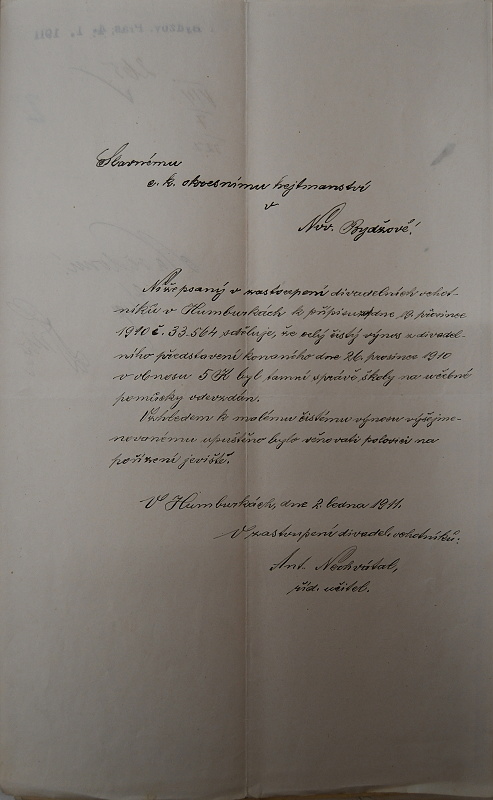 Slavnému
c. k. okresnímu hejtmanství
v
Nov. Bydžově!
Nížepsaný v zastoupení divadelních ochot-
níků v Humburkách k přípisu ze dne 19. prosince
1910 č. 33.564 sděluje, že celý čistý výnos z divadel-
ního představení konaného dne 26. prosince 1910
v obnosu 5 K byl tamní správě školy na učebné
pomůcky odevzdán.
Vzhledem k malému čistému výnosu výšejme-
novanému upuštěno bylo věnovati polovici na
pořízení jeviště.
V Humburkách, dne 2. ledna 1911.
V zastoupení divadel. ochotníků:
Ant. Nechvátal,
říd. učitel.